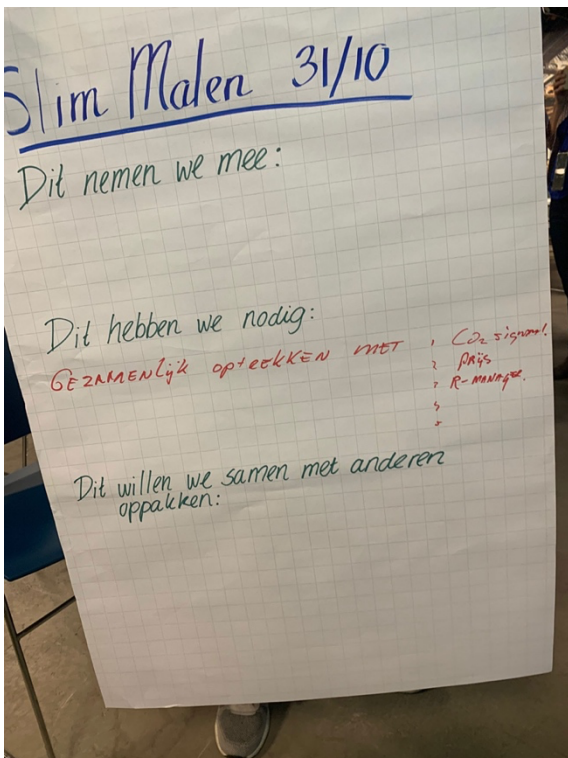 Slim Malen 31/10
Dit nemen we mee:
Dit hebben we nodig:
GEZAMENlijk optrekken MET
CO2 signaal
prijs
R-MANAGER
Dit willen we samen met anderen
oppakken: